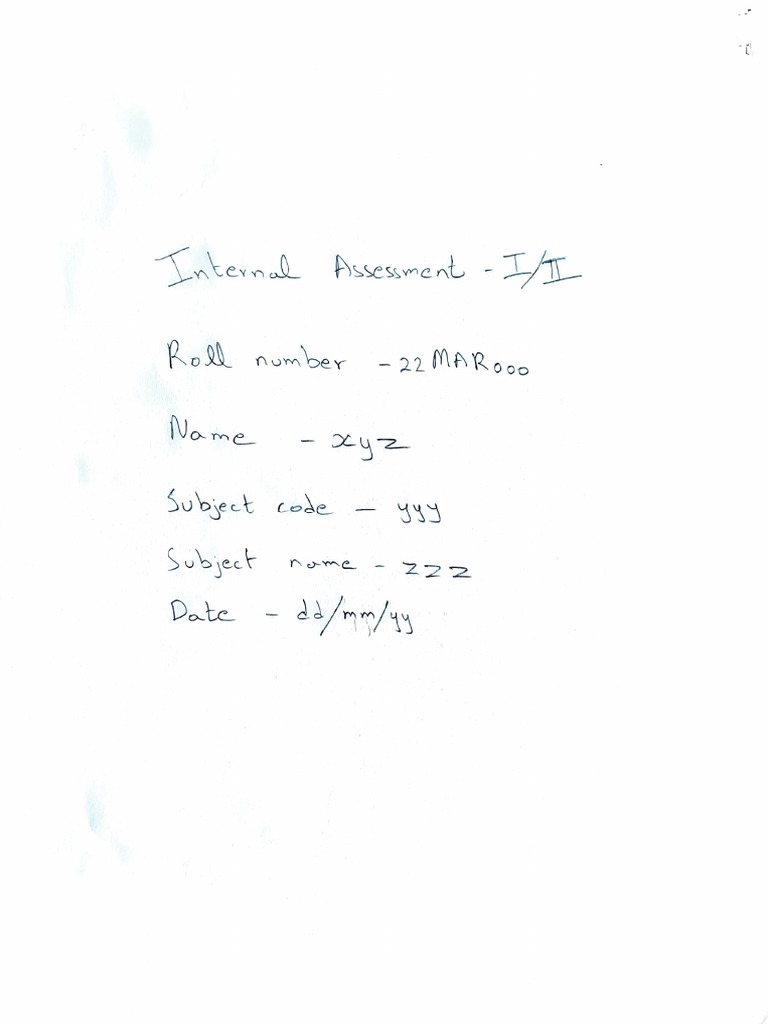 Internal Assessment - I/II
Roll number - 22MAR000
Name - xyz
Subject code - yyy
Subject name - zzz
Date - dd/mm/yy